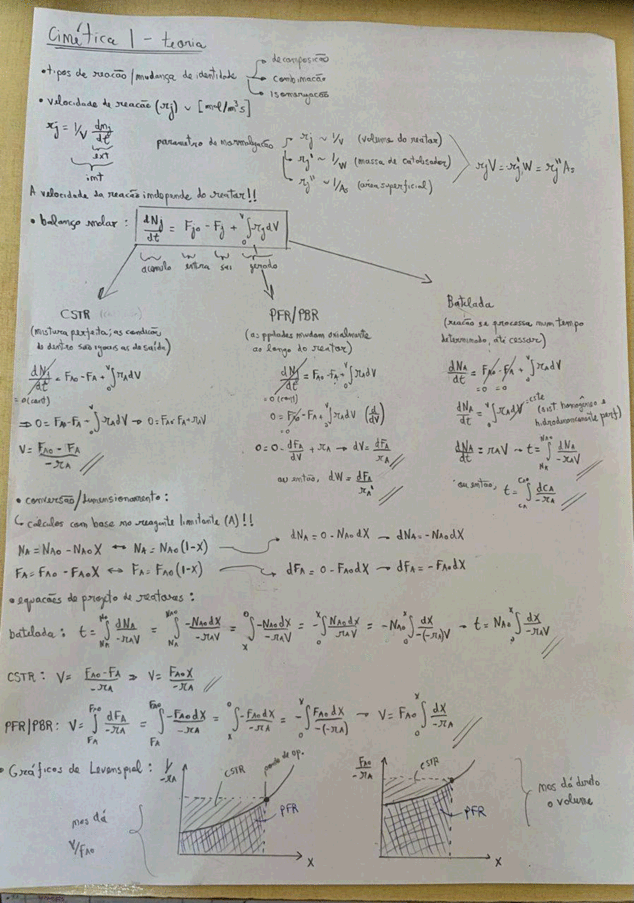 Cinética 1 - teoria
• tipos de reação/mudança de identidade
decomposição
combinação
isomerização
• velocidade de reação (rj) ~ [mol/m³s]
rj = 1/V dnj/dt
ext
int
parametro de normalização
rj ~ 1/V (volume do reator)
rj' ~ 1/W (massa de catalisador)
rj'' ~ 1/As (área superficial)
rjV = rj'W = rj''As
A velocidade da reação independe do reator!!
• balanço molar: dNj/dt = Fjo - Fj + ∫₀ⱽ rj dV
acumulo entra sai gerado
CSTR
(mistura perfeita; as condições
de dentro são iguais as da saída)
dNj/dt = FAo - FA + ∫₀ⱽ rA dV
=0 (const)
⇒ 0 = FAo - FA - ∫₀ⱽ rA dV → 0 = FAo - FA + rAV
V = FAo - FA / -rA
PFR/PBR
(as ppdades mudam axialmente
ao longo do reator)
dNj/dt = FAo - FA + ∫₀ⱽ rA dV
=0 (const)
0 = FAo - FA + ∫₀ⱽ rA dV (d/dV)
=0
0 = 0 - dFA/dV + rA → dV = dFA/rA
ou então, dW = dFA/rA'
Batelada
(reação se processa num tempo
determinado, até cessar)
dNA/dt = FAo - FA + ∫₀ⱽ rA dV
=0 =0
dNA/dt = ∫₀ⱽ rA dV = cte
(sist homogêneo e
hidrodinamicamente perf)
dNA/dt = rAV → t = ∫ dNA/-rAV
NAo
NA
ou então, t = ∫ dCA/-rA
CAo
CA
• conversão/dimensionamento:
↳ calculos com base no reagente limitante (A)!!
NA = NAo - NAoX ↔ NA = NAo(1-X) → dNA = 0 - NAodX → dNA = -NAodX
FA = FAo - FAoX ↔ FA = FAo(1-X) → dFA = 0 - FAodX → dFA = -FAodX
• equações de projeto de reatores:
batelada: t = ∫ dNA/-rAV = ∫ -NAodX/-rAV = ∫ -NAodX/-rAV = -∫ NAodX/-rAV = -NAo ∫ dX/-(-rA)V → t = NAo ∫ dX/-rAV
CSTR: V = FAo-FA/-rA ⇒ V = FAoX/-rA
PFR/PBR: V = ∫ dFA/-rA = ∫ -FAodX/-rA = ∫ -FAodX/-rA = -∫ FAodX/-(-rA) → V = FAo ∫ dX/-rA
• Gráficos de Levenspiel:
1/-rA
CSTR
ponto de op.
PFR
X
nos dá
V/FAo
FAo/-rA
CSTR
PFR
X
nos dá direto
o volume